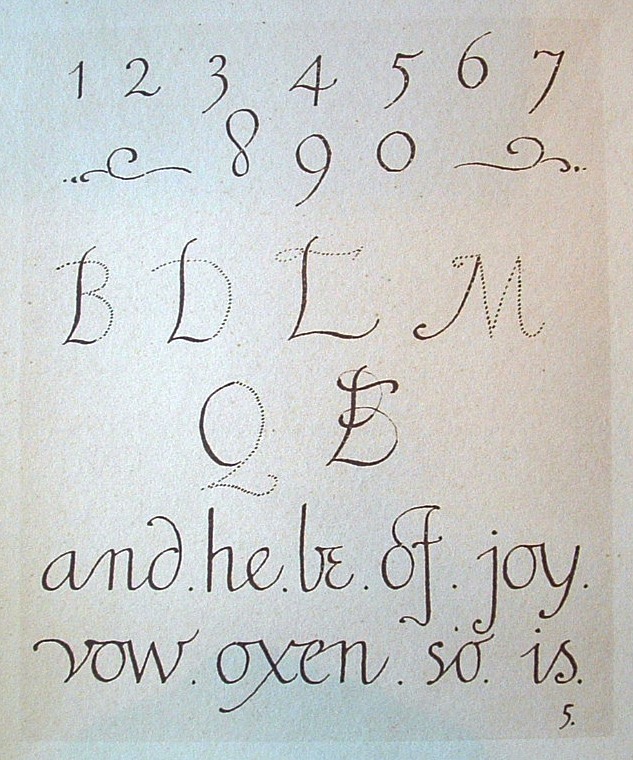 1 2 3 4 5 6 7
8 9 0
B D L M
Q
and. he. be. of. joy.
vow. oxen. so. is.
5.